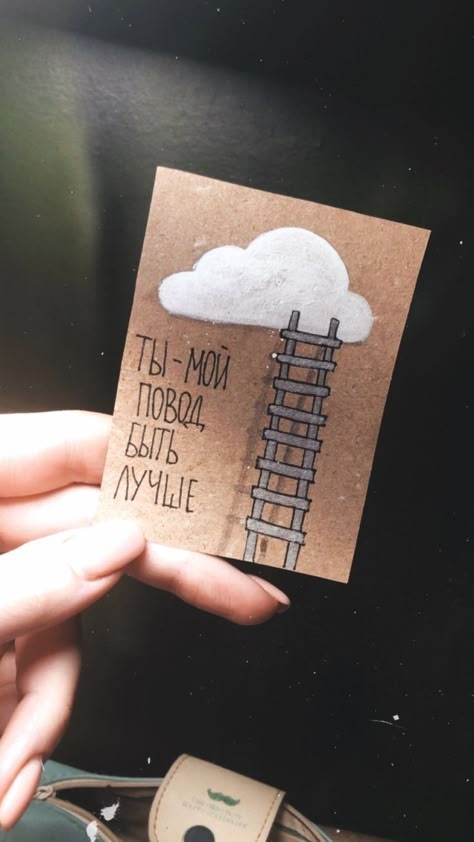 ТЫ - МОЙ
ПОВОД
БЫТЬ
ЛУЧШЕ